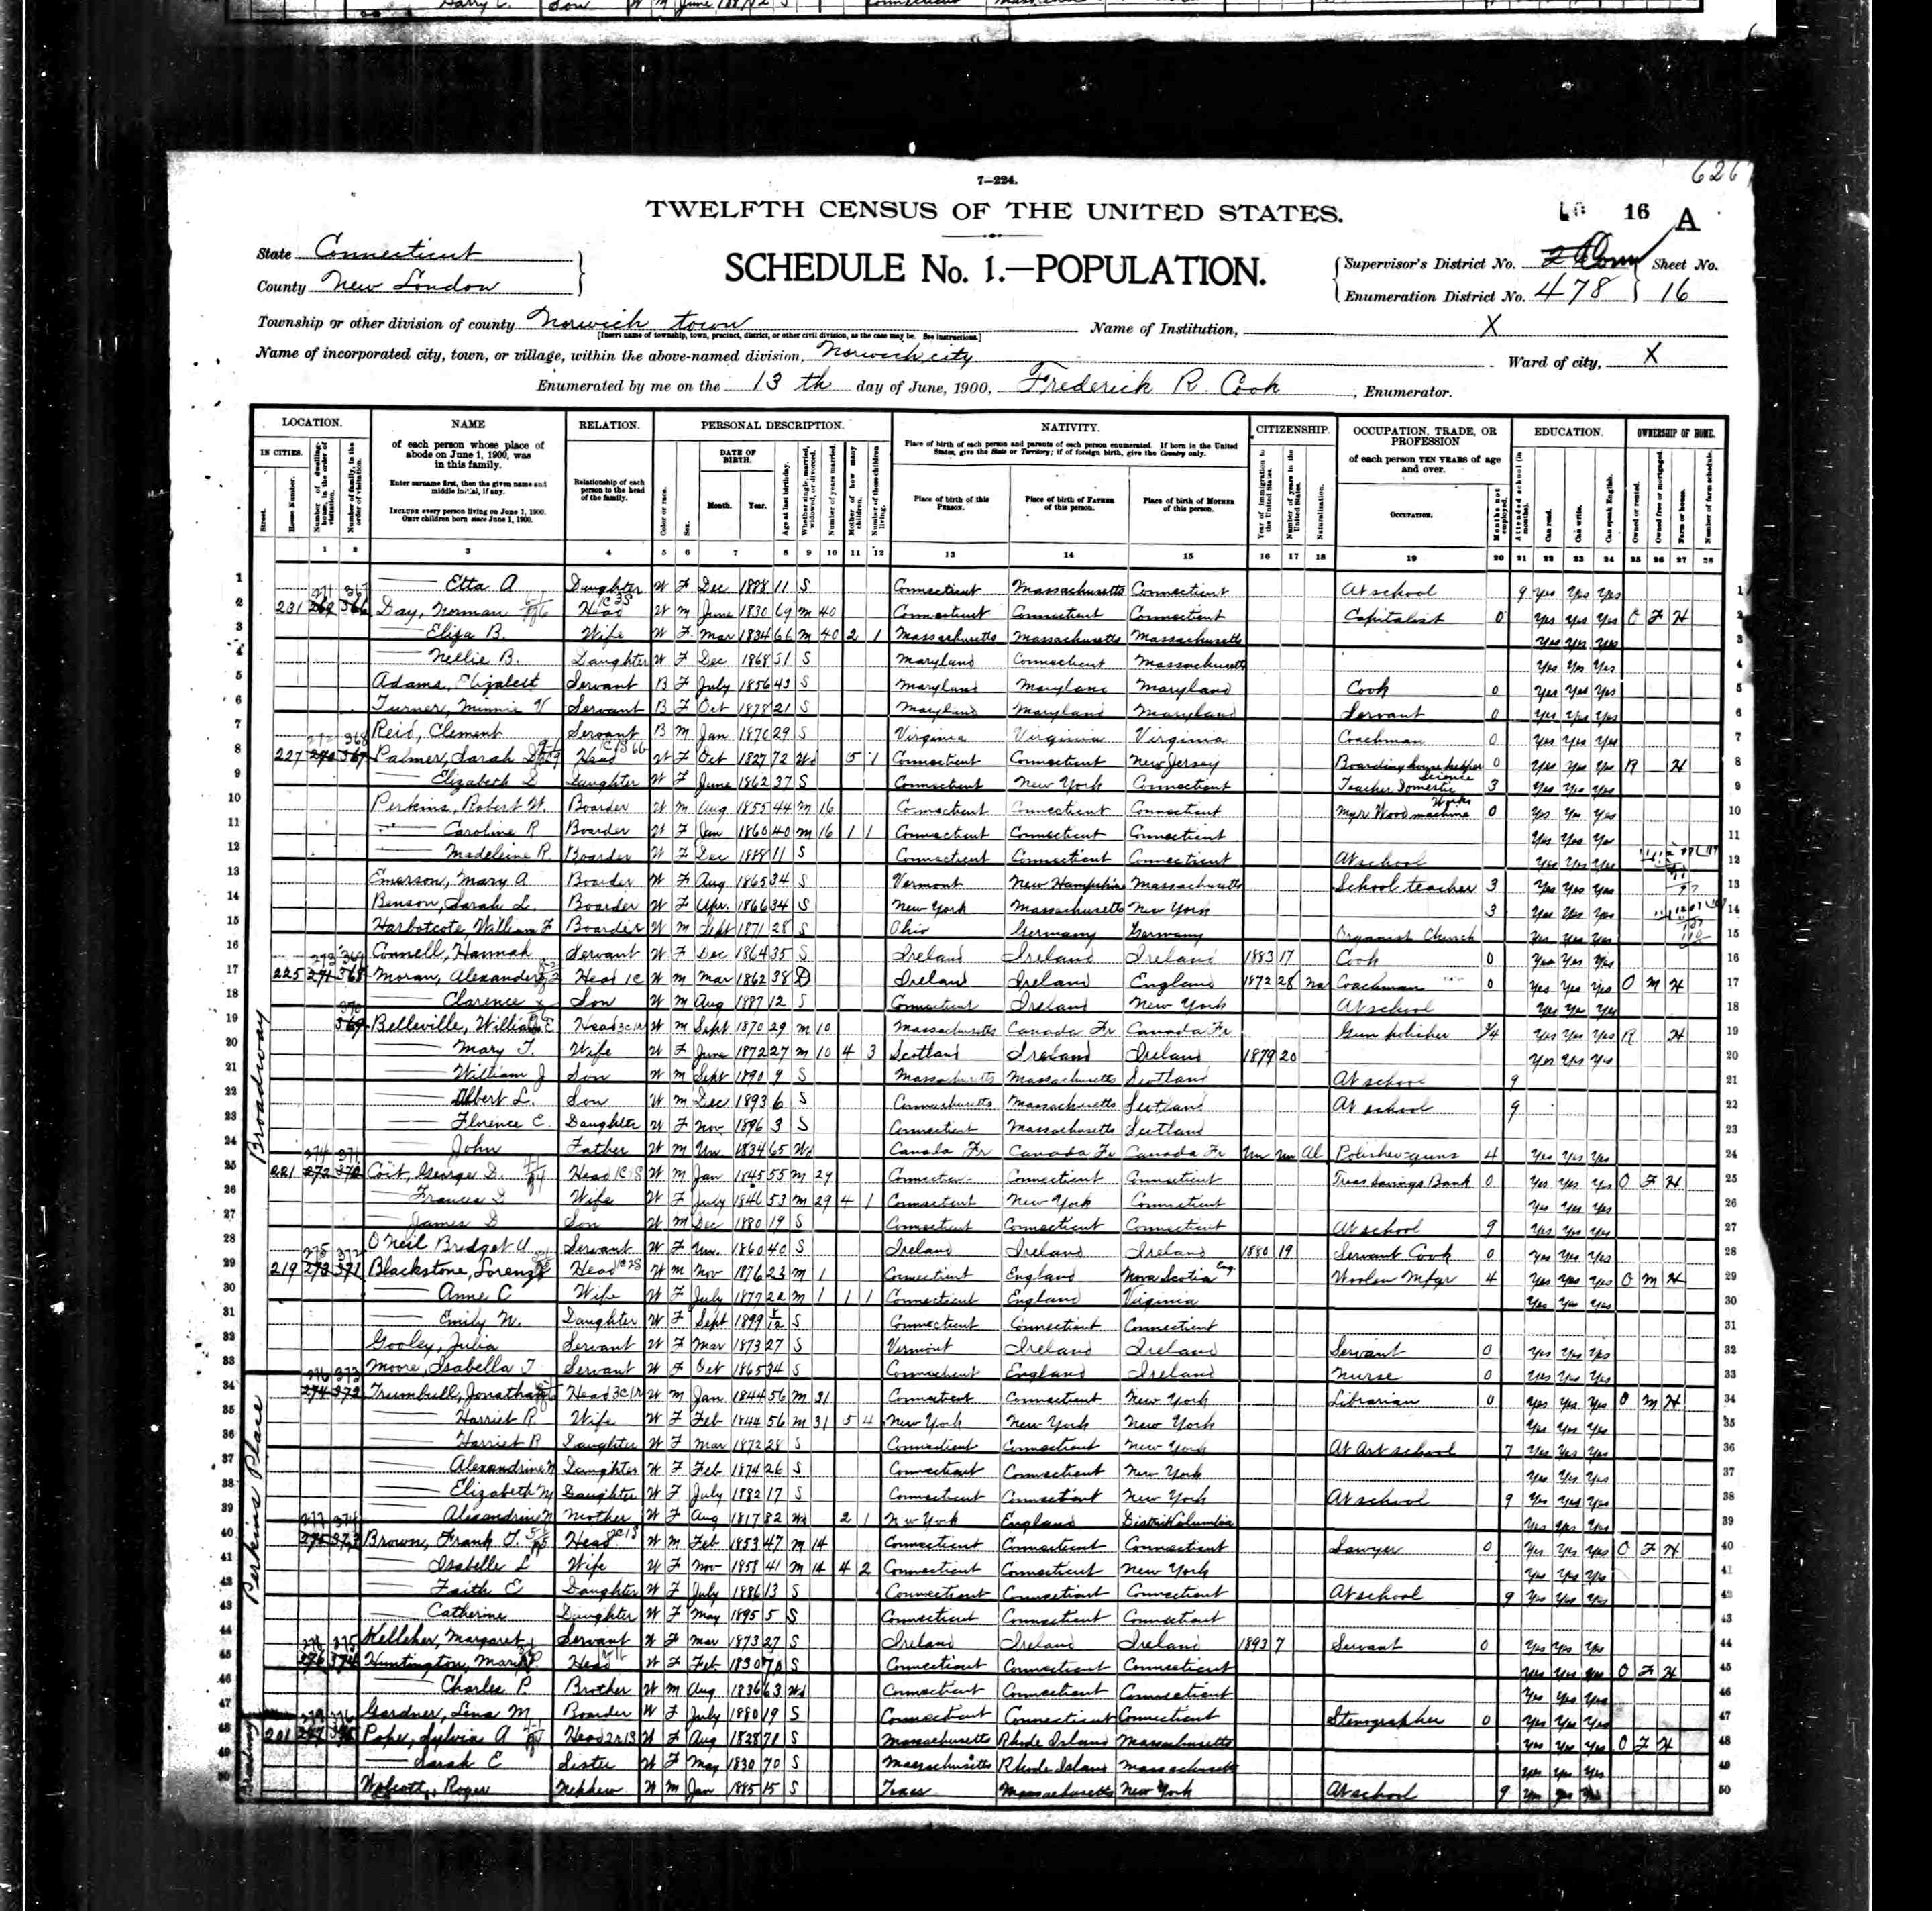 7—224.
TWELFTH CENSUS OF THE UNITED STATES.
16 A
State Connecticut
County New London
SCHEDULE No. 1.—POPULATION.
Supervisor's District No. Sheet No.
Enumeration District No. 478 16
Township or other division of county Norwich town Name of Institution, X
[Insert name of township, town, precinct, district, or other civil division, as the case may be. See instructions.]
Name of incorporated city, town, or village, within the above-named division, Norwich city Ward of city, X
Enumerated by me on the 13 th day of June, 1900, Frederick R. Cook, Enumerator.
LOCATION. NAME RELATION. PERSONAL DESCRIPTION. NATIVITY. CITIZENSHIP. OCCUPATION, TRADE, OR PROFESSION EDUCATION. OWNERSHIP OF HOME.
IN CITIES.
of each person whose place of abode on June 1, 1900, was in this family.
Enter surname first, then the given name and middle initial, if any.
INCLUDE every person living on June 1, 1900. OMIT children born since June 1, 1900.
Relationship of each person to the head of the family.
DATE OF BIRTH. Month. Year.
Place of birth of each person and parents of each person enumerated. If born in the United States, give the State or Territory; if of foreign birth, give the Country only.
Place of birth of this Person. Place of birth of Father of this person. Place of birth of Mother of this person.
of each person TEN YEARS of age and over.
Occupation.
1 2 3 4 5 6 7 8 9 10 11 12 13 14 15 16 17 18 19 20 21 22 23 24 25 26 27 28
1 Etta A Daughter W F Dec 1888 11 S Connecticut Massachusetts Connecticut At school 9 Yes Yes Yes
2 231 Day, Norman Head W M June 1830 69 M 40 Connecticut Connecticut Connecticut Capitalist 0 Yes Yes Yes O F H
3 Eliza B. Wife W F Mar 1834 66 M 40 2 1 Massachusetts Massachusetts Massachusetts Yes Yes Yes
4 Nellie B. Daughter W F Dec 1868 31 S Maryland Connecticut Massachusetts Yes Yes Yes
5 Adams, Elizabeth Servant B F July 1856 43 S Maryland Maryland Maryland Cook 0 Yes Yes Yes
6 Turner, Minnie V Servant B F Oct 1878 21 S Maryland Maryland Maryland Servant 0 Yes Yes Yes
7 Reid, Clement Servant B M Jan 1870 29 S Virginia Virginia Virginia Coachman 0 Yes Yes Yes
8 227 Palmer, Sarah Head W F Oct 1827 72 Wd 5 1 Connecticut Connecticut New Jersey Boarding house keeper 0 Yes Yes Yes R H
9 Elizabeth D Daughter W F June 1862 37 S Connecticut New York Connecticut Teacher Domestic Science 3 Yes Yes Yes
10 Perkins, Robert W. Boarder W M Aug 1855 44 M 16 Connecticut Connecticut Connecticut Wood machine Works 0 Yes Yes Yes
11 Caroline R Boarder W F Jan 1860 40 M 16 1 1 Connecticut Connecticut Connecticut Yes Yes Yes
12 Madeleine R. Boarder W F Dec 1888 11 S Connecticut Connecticut Connecticut At school Yes Yes Yes
13 Emerson, Mary A Boarder W F Aug 1865 34 S Vermont New Hampshire Massachusetts School teacher 3 Yes Yes Yes
14 Benson, Sarah L. Boarder W F Apr. 1866 34 S New York Massachusetts New York 3 Yes Yes Yes
15 William F Boarder W M Sept 1871 28 S Ohio Germany Germany Organist Church Yes Yes Yes
16 Connell, Hannah Servant W F Dec 1864 35 S Ireland Ireland Ireland 1883 17 Cook 0 Yes Yes Yes
17 225 Moran, Alexander Head W M Mar 1862 38 D Ireland Ireland England 1872 28 Na Coachman 0 Yes Yes Yes O M H
18 Clarence Son W M Aug 1887 12 S Connecticut Ireland New York At school Yes Yes Yes
19 Belleville, William E Head W M Sept 1870 29 M 10 Massachusetts Canada Fr Canada Fr Gun polisher Yes Yes Yes R H
20 Mary T. Wife W F June 1872 27 M 10 4 3 Scotland Ireland Ireland 1879 20 Yes Yes Yes
21 William J Son W M Sept 1890 9 S Massachusetts Massachusetts Scotland At school 9
22 Albert L. Son W M Dec 1893 6 S Massachusetts Scotland At school 9
23 Florence E. Daughter W F Nov. 1896 3 S Connecticut Massachusetts Scotland
24 John Father W M Un. 1834 65 Wd Canada Fr Canada Fr Canada Fr Un Un Al Polisher-guns 4 Yes Yes Yes
25 221 Coit, George D. Head W M Jan 1845 55 M 29 Connecticut Connecticut Connecticut Treas Savings Bank 0 Yes Yes Yes O F H
26 Frances D Wife W F July 1846 53 M 29 4 1 Connecticut New York Connecticut Yes Yes Yes
27 James D Son W M Dec 1880 19 S Connecticut Connecticut Connecticut At school 9 Yes Yes Yes
28 O'Neil Bridget Servant W F Un. 1860 40 S Ireland Ireland Ireland 1880 19 Servant Cook 0 Yes Yes Yes
29 219 Blackstone, Lorenzo Head W M Nov 1876 23 M 1 Connecticut England Nova Scotia Eng. Woolen Mfgr 4 Yes Yes Yes O M H
30 Anne C Wife W F July 1877 22 M 1 1 1 Connecticut England Virginia Yes Yes Yes
31 Emily N. Daughter W F Sept 1899 8/12 S Connecticut Connecticut Connecticut
32 Gooley, Julia Servant W F Mar 1873 27 S Vermont Ireland Ireland Servant 0 Yes Yes Yes
33 Moore, Isabella T Servant W F Oct 1865 34 S Connecticut England Ireland Nurse 0 Yes Yes Yes
34 Trumbull, Jonathan Head W M Jan 1844 56 M 31 Connecticut Connecticut New York Librarian 0 Yes Yes Yes O M H
35 Harriet R. Wife W F Feb 1844 56 M 31 5 4 New York New York New York Yes Yes Yes
36 Harriet R Daughter W F Mar 1872 28 S Connecticut Connecticut New York At Art school 7 Yes Yes Yes
37 Alexandrine N Daughter W F Feb 1874 26 S Connecticut Connecticut New York Yes Yes Yes
38 Elizabeth M Daughter W F July 1882 17 S Connecticut Connecticut New York At school 9 Yes Yes Yes
39 Alexandrine N Mother W F Aug 1817 82 Wd 2 1 New York England District Columbia Yes Yes Yes
40 Brown, Frank T. Head W M Feb 1853 47 M 14 Connecticut Connecticut Connecticut Lawyer 0 Yes Yes Yes O F H
41 Isabelle L Wife W F Nov 1858 41 M 14 4 2 Connecticut Connecticut New York Yes Yes Yes
42 Faith E Daughter W F July 1886 13 S Connecticut Connecticut Connecticut At school 9 Yes Yes Yes
43 Catherine Daughter W F May 1895 5 S Connecticut Connecticut Connecticut
44 Kelleher, Margaret Servant W F Mar 1873 27 S Ireland Ireland Ireland 1893 7 Servant 0 Yes Yes Yes
45 Huntington, Maria P. Head W F Feb 1830 70 S Connecticut Connecticut Connecticut Yes Yes Yes O F H
46 Charles P Brother W M Aug 1836 63 Wd Connecticut Connecticut Connecticut Yes Yes Yes
47 Gardner, Lena M Boarder W F July 1880 19 S Connecticut Connecticut Connecticut Stenographer 0 Yes Yes Yes
48 201 Pope, Sylvia A Head W F Aug 1828 71 S Massachusetts Rhode Island Massachusetts Yes Yes Yes O F H
49 Sarah E Sister W F May 1830 70 S Massachusetts Rhode Island Massachusetts Yes Yes Yes
50 Wolcott, Roger Nephew W M Jan 1885 15 S Texas Massachusetts New York At school 9 Yes Yes Yes
Broadway
Perkins Place
Broadway